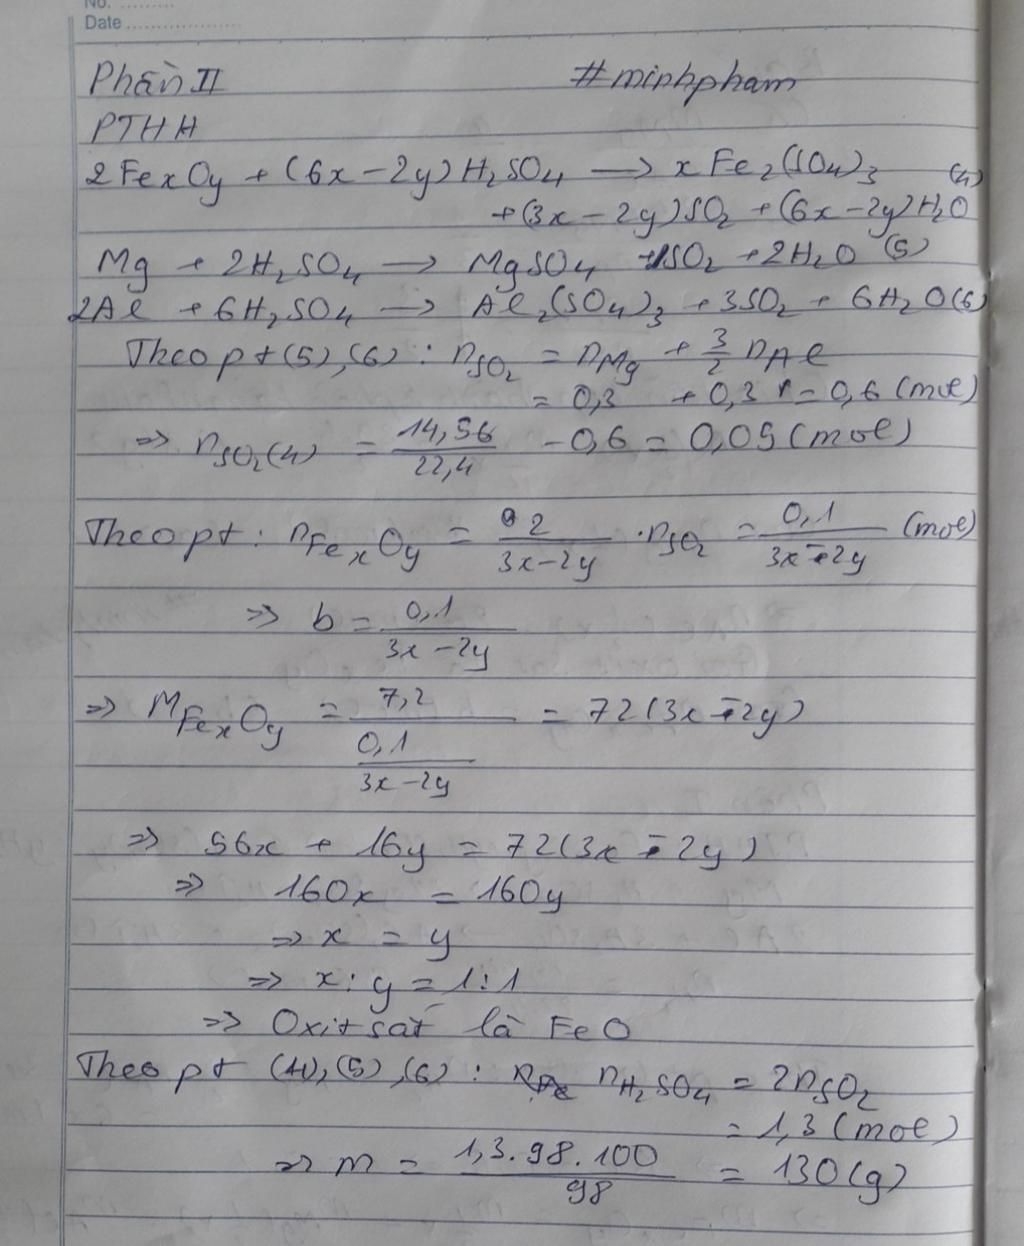 No. .........
Date ....................
Phần II #minhpham
PTHH
2FexOy + (6x-2y)H2SO4 → xFe2(SO4)3 (4)
+(3x-2y)SO2 + (6x-2y)H2O
Mg + 2H2SO4 → MgSO4 + SO2 + 2H2O (5)
2Al + 6H2SO4 → Al2(SO4)3 + 3SO2 + 6H2O (6)
Theo pt (5), (6) : nSO2 = nMg + 3/2 nAl
= 0,3 + 0,3 = 0,6 (mol)
=> nSO2(4) = 14,56/22,4 - 0,6 = 0,05 (mol)
Theo pt : nFexOy = 2/(3x-2y) . nSO2 = 0,1/(3x-2y) (mol)
=> b = 0,1/(3x-2y)
=> MFexOy = 7,2/(0,1/(3x-2y)) = 72(3x-2y)
=> 56x + 16y = 72(3x-2y)
=> 160x = 160y
=> x = y
=> x : y = 1:1
=> Oxit sắt là FeO
Theo pt (4), (5), (6) : nH2SO4 = 2nSO2
= 1,3 (mol)
=> m = 1,3.98.100/98 = 130(g)